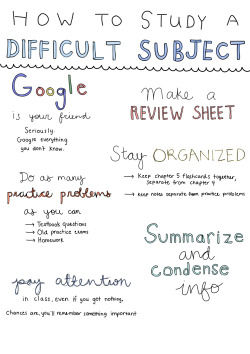 HOW TO STUDY A
DIFFICULT SUBJECT
Google
is your friend
Seriously.
Google everything
you don't know.
Make a
REVIEW SHEET
Stay ORGANIZED
→ Keep chapter 5 flashcards together,
separate from chapter 4
→ Keep notes separate from practice problems
Do as many
practice problems
as you can
→ Textbook questions
→ Old practice exams
→ Homework
Summarize
and
Condense
info
pay attention
in class, even if you get nothing.
Chances are, you'll remember something important